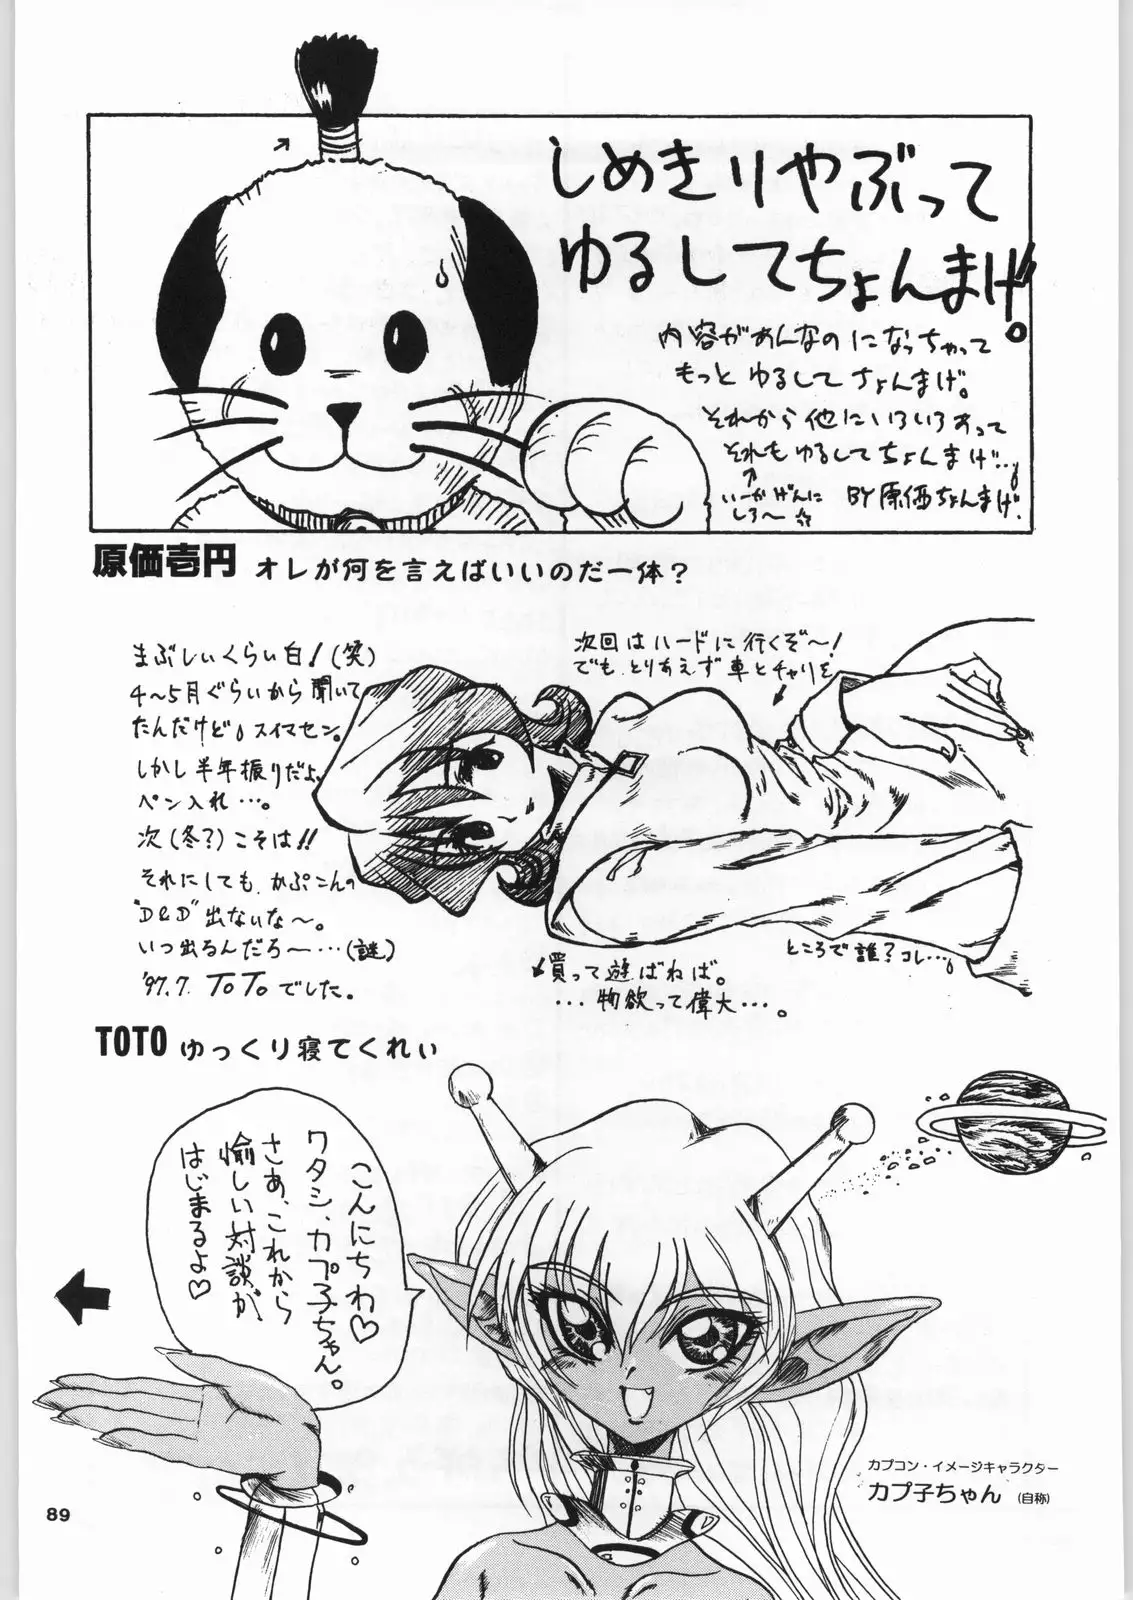 しめきりやぶって
ゆるしてちょんまげ。
内容があんなのになっちゃって
もっとゆるしてちょんまげ。
それから他にいろいろあって
それもゆるしてちょんまげ…。
いーかげんに
しろ〜☆
BY原価ちょんまげ.
原価壱円 オレが何を言えばいいのだ一体？
まぶしいくらい白!(笑)
4〜5月ぐらいから聞いて
たんだけど。スイマセン。
しかし半年振りだよ。
ペン入れ…。
次(冬?)こそは!!
それにしても、かぷこんの
"D&D"出ないな〜。
いつ出るんだろ〜…(謎)
'97.7. TOTOでした。
次回はハードに行くぞ〜!
でも、とりあえず車とチャリを
買って遊ばねば。
...物欲って偉大…。
ところで誰?コレ…。
TOTO ゆっくり寝てくれぃ
こんにちわ♡
ワタシ、カプ子ちゃん。
さあ、これから
愉しい対談が、
はじまるよ♡
カプコン・イメージキャラクター
カプ子ちゃん (自称)
89